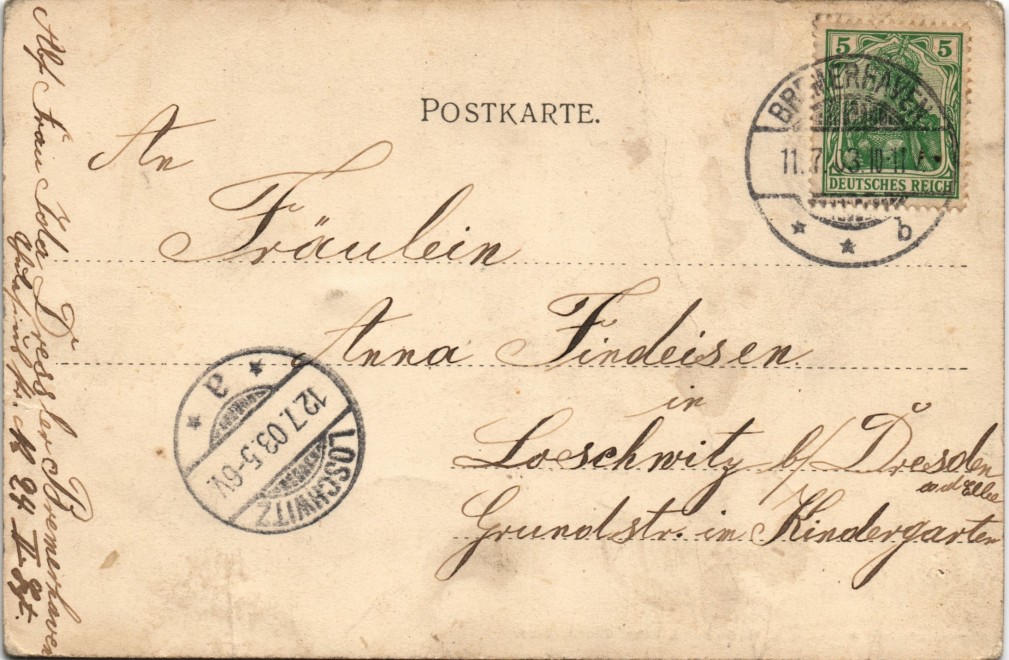 POSTKARTE.
5 5
DEUTSCHES REICH
BREMERHAVEN
11.7.03.10-11
* * b
An
Fräulein
Anna Findeisen
in
Loschwitz b/ Dresden
a.d. Elbe
Grundstr. in Kindergarten
* a *
12.7.03.5-6V.
LOSCHWITZ
Abs. Frau Dressler Bremerhaven
24 II